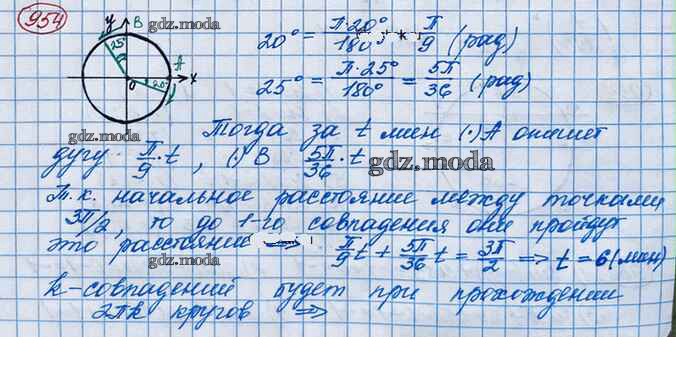 954
y B gdz.moda
25° A
0 20° x
20° = π·20° / 180° = π/9 (рад)
25° = π·25° / 180° = 5π/36 (рад)
gdz.moda
Тогда за t мин (·)A опишет
дугу π/9 · t, (·) B 5π/36 · t gdz.moda
Т.к. начальное расстояние между точками
3π/2, то до 1-го совпадения они пройдут
это расстояние ⟹ π/9 t + 5π/36 t = 3π/2 ⟹ t = 6 (мин)
gdz.moda
k-совпадений будет при прохождении
2πk кругов ⟹